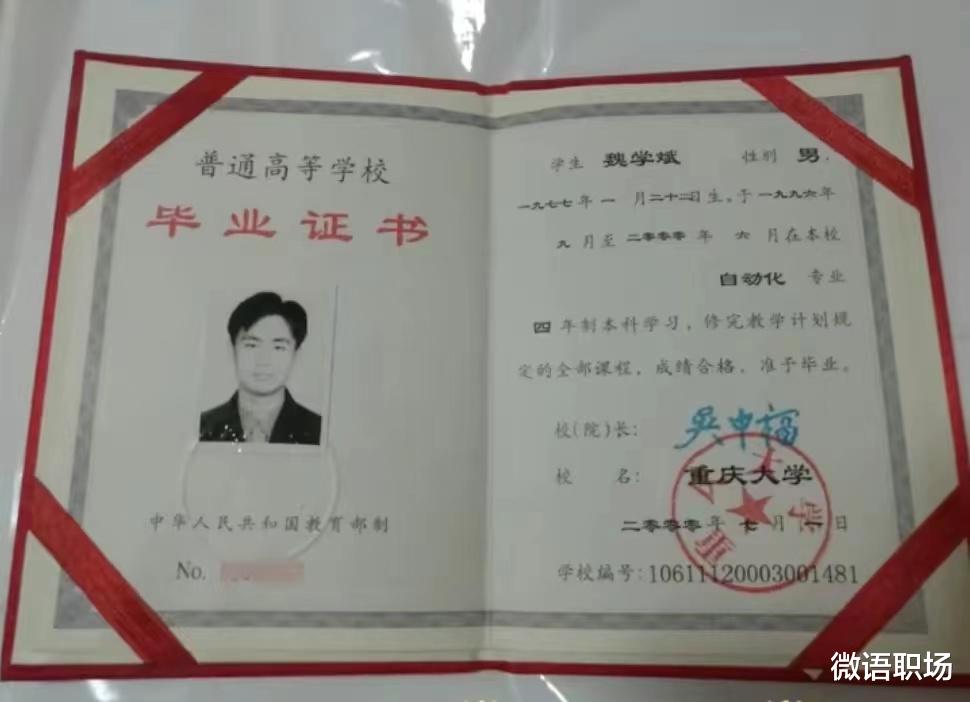 普通高等学校
毕业证书
中华人民共和国教育部制
No.
学生 魏学斌 性别 男，
一九七七年 一 月二十二日生。于一九九六年
九 月至 二〇〇〇 年 六 月在本校
自动化 专业
四 年制本科学习，修完教学计划规
定的全部课程，成绩合格，准予毕业。
校(院)长： 吴中福
校 名： 重庆大学
二〇〇〇年 七 月 一 日
学校编号:10611120003001481
微语职场